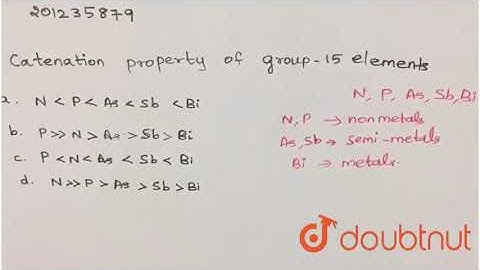 201235879
Catenation property of group-15 elements
a. N < P < As < Sb < Bi
b. P >> N > As > Sb > Bi
c. P < N < As < Sb < Bi
d. N >> P > As > Sb > Bi
N, P, As, Sb, Bi
N, P → nonmetals
As, Sb → semi-metals
Bi → metals.
doubtnut